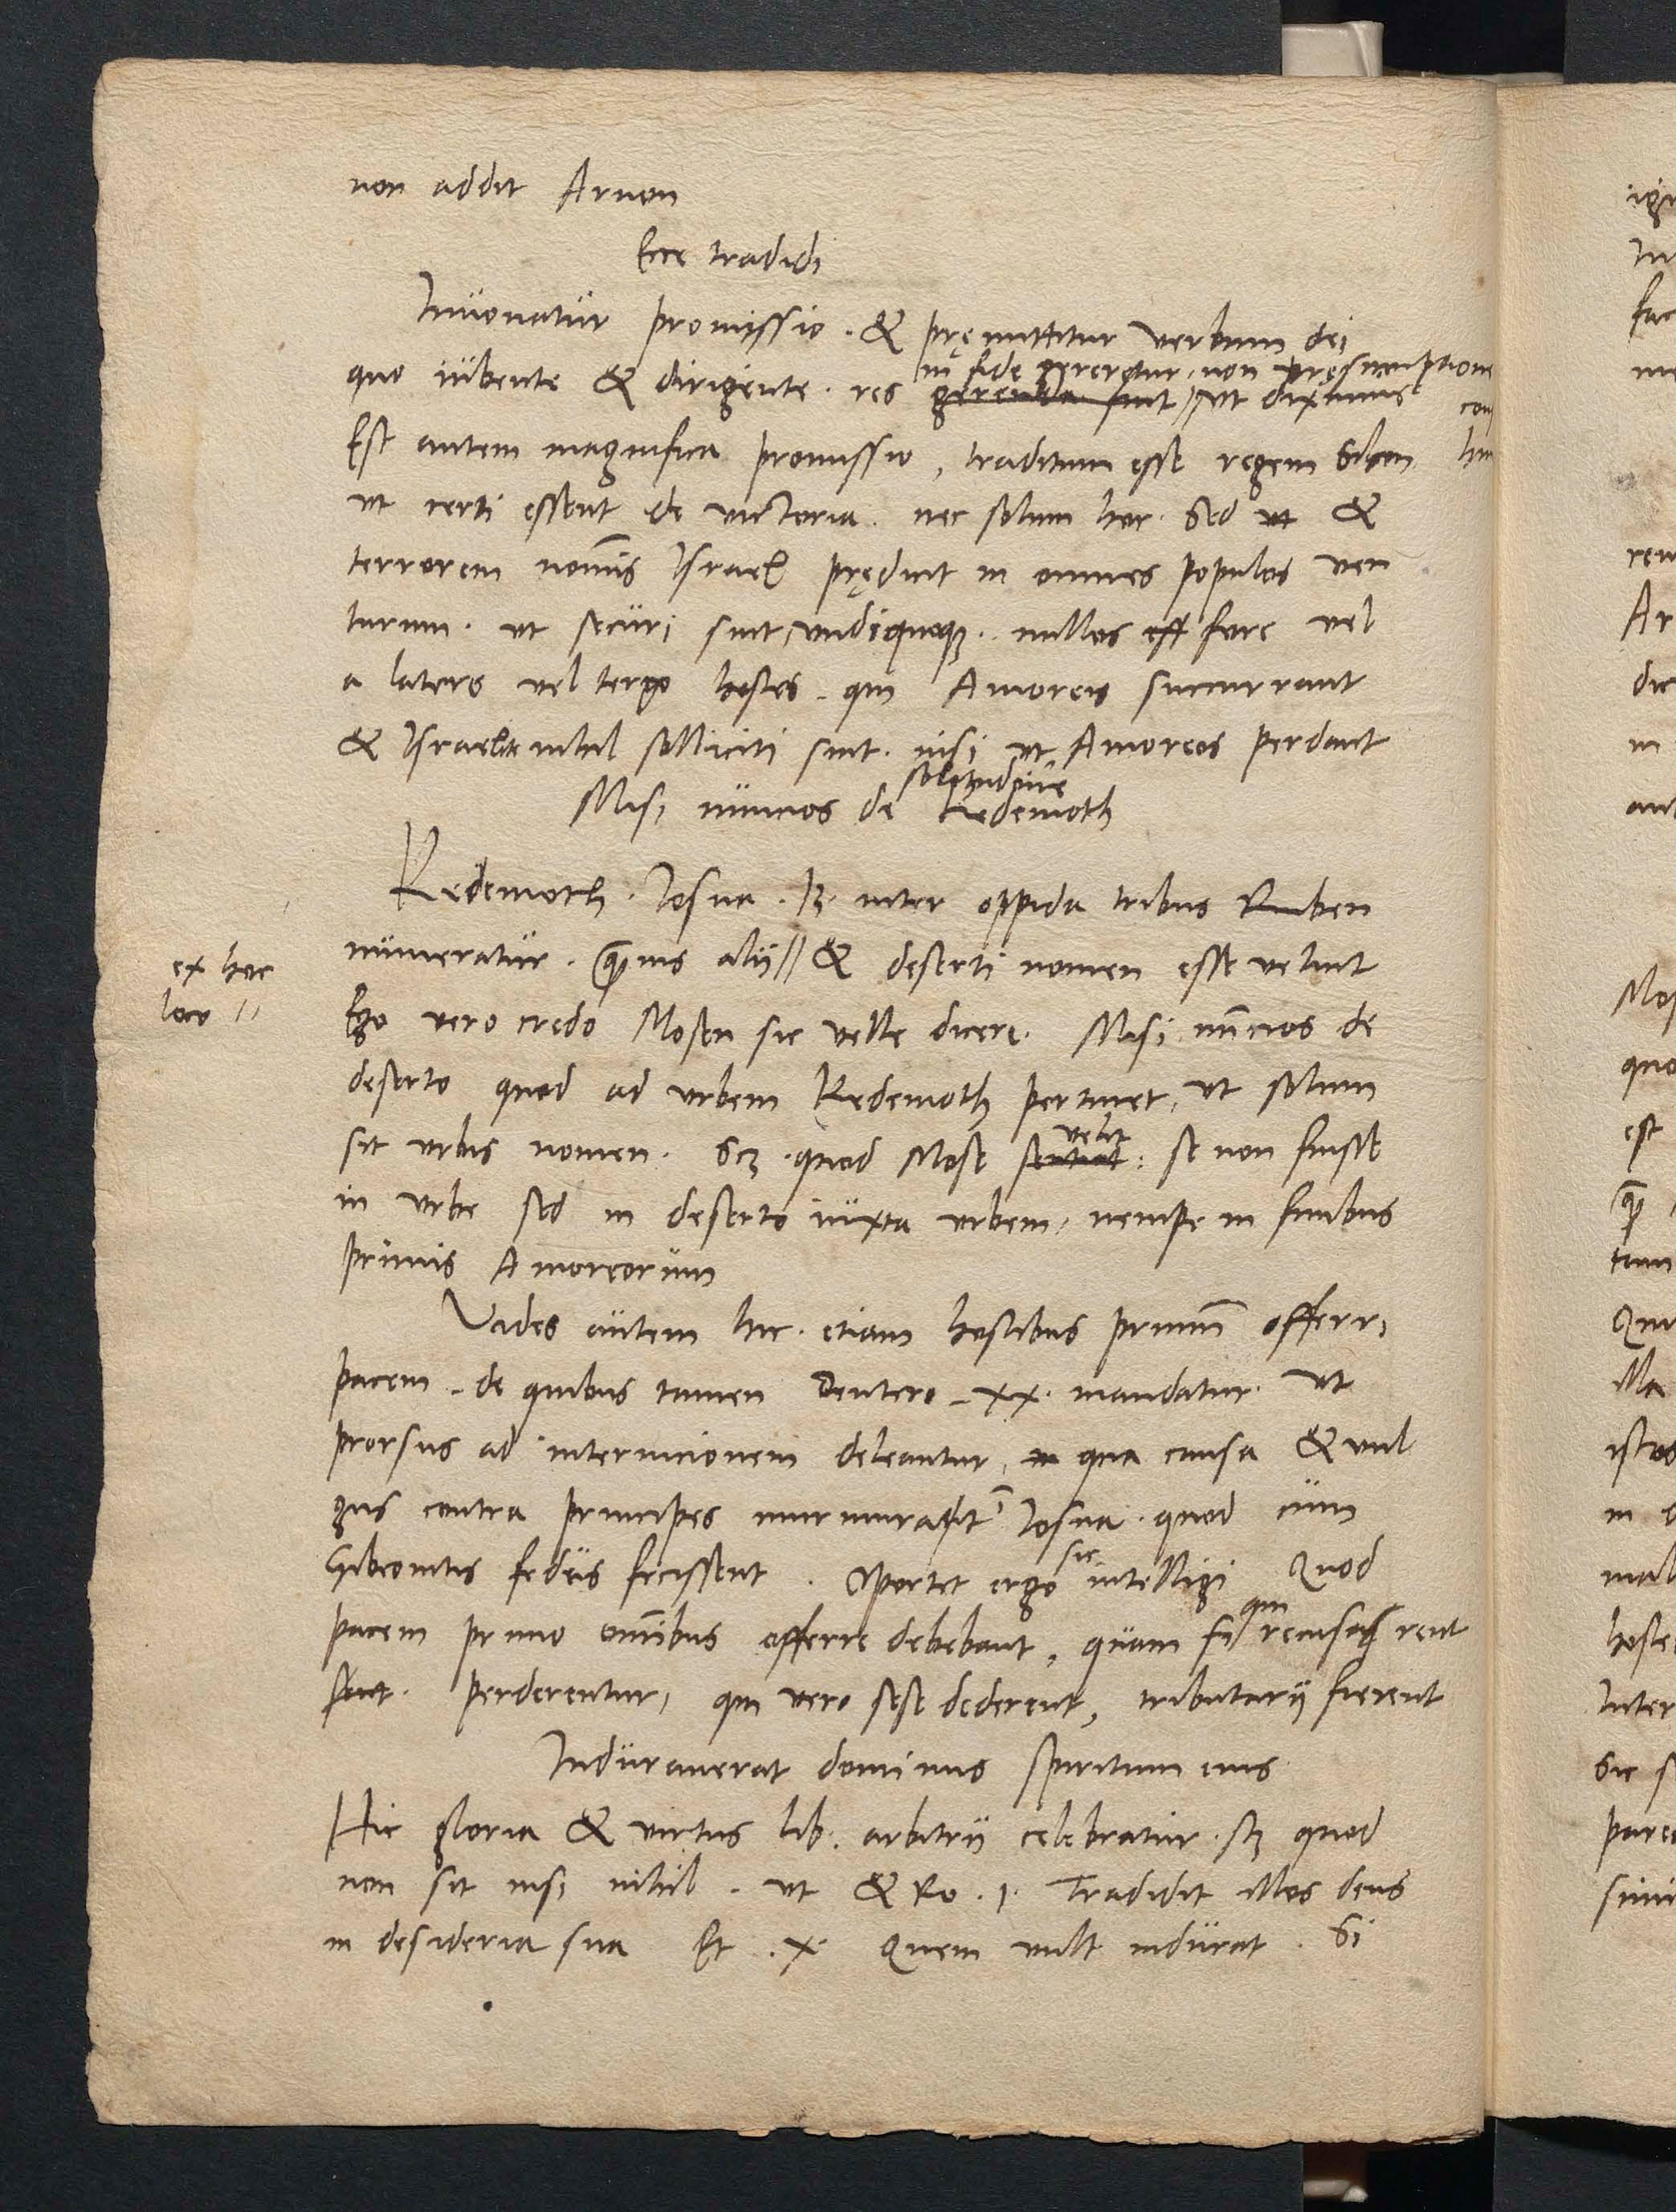 non addit Arnon
Ecce tradidi
Innouatur promissio. & pręmittitur verbum dei
in fide gereretur. non pręsumptione
quo iubente & dirigente. res gerenda sint // ut diximus
Est autem magnifica promissio, traditum esse regem Sihon
ut certi essent de victoria. nec solum hoc. Sed ut &
terrorem nominis Israel prędicit in omnes populos ven
turum. ut securi sint, undiquaque. nullos ess fore vel
a latere vel tergo hostes. qui Amoreis succurrant
& Israelite nihil solliciti sint. nisi ut Amoreos perdant
solitudine
Misi nuncios de Kedemoth
Kedemoth. Iosua. 13. inter oppida tribus Ruben
numeratur. quamuis alij // & deserti nomen esse velint
ex hoc
loco //
Ego vero credo Mosen sic velle dicere. Misi nuncios de
deserto quod ad urbem Kedemoth pertinet, ut solum
velit
sit urbis nomen. scz. quod Mose sentiat: se non fuisse
in urbe sed in deserto iuxta urbem, nempe in finibus
primis Amoreorum
Vides autem hic. etiam hostibus primum offerri
pacem. de quibus tamen Deutero. xx. mandatur. ut
prorsus ad internicionem deleantur, in qua causa & vul
gus contra principes murmurauit Iosua. quod cum
sic
Gibeonitis fedus fecissent. Oportet ergo intelligi Quod
qui
pacem primo omnibus offerre debebant, quam si recusarent
sent. perderentur, qui vero sese dederent, tributarij fierent
Indurauerat dominus spiritum eius
Hic gloria & virtus lib. arbitrij celebratur. scz quod
non sit nisi nihil. ut & Ro. 1. Tradidit illos deus
in desideria sua Et .x. Quem vult indurat. Si